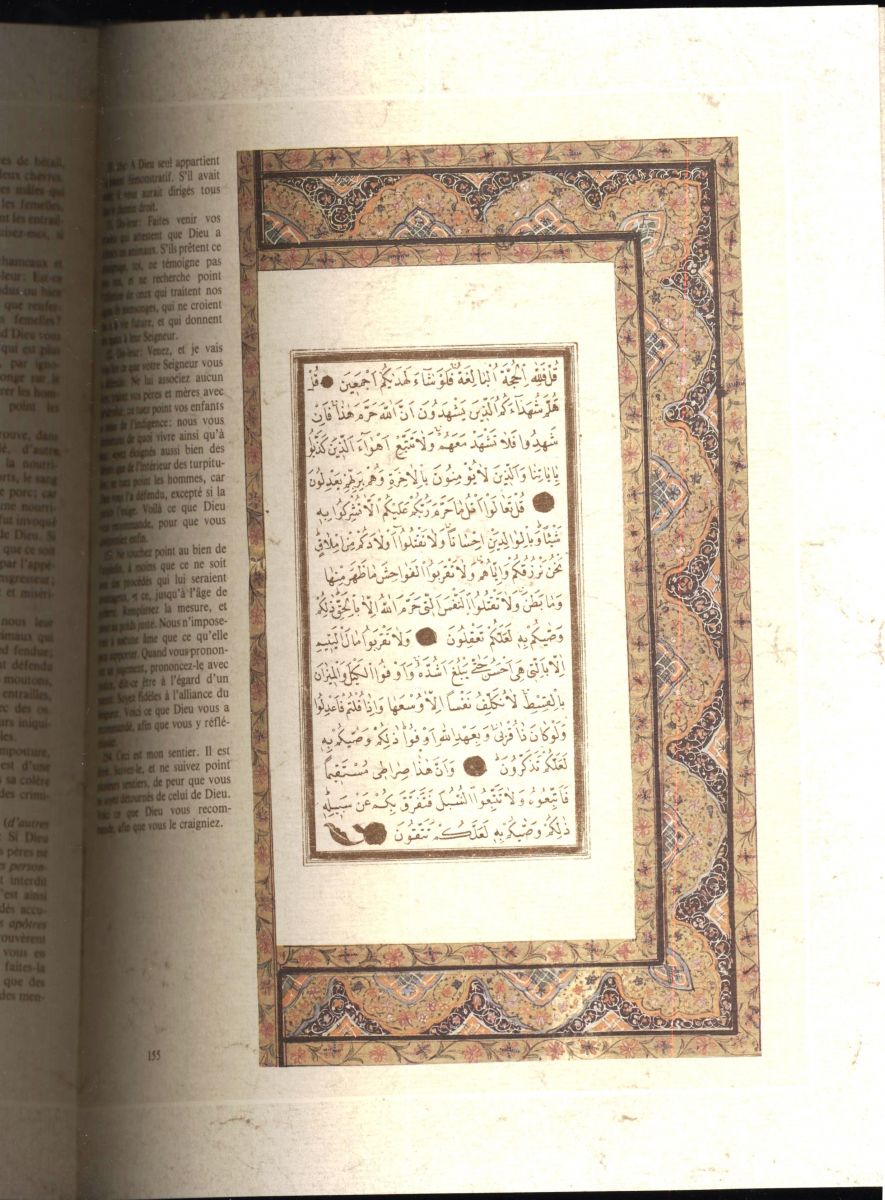 res de bétail,
deux chèvres.
les femelles,
nt les entrail-
chameaux et
leur: Est-ce
que renfer-
femelles?
d Dieu vous
qui est plus
, par igno-
onge sur le
rer les hom-
point les
rouve, dans
la nourri-
rts, le sang
porc; car
fut invoqué
de Dieu. Si
que ce soit
par l'appé-
nsgresseur;
et miséri-
nous leur
nimaux qui
nd fendue;
nt défendu
moutons,
entrailles,
ec des os.
urs iniqui-
est d'une
sa colère
des crimi-
(d'autres
Si Dieu
s pères ne
es person-
interdit
C'est ainsi
dés accu-
apôtres
rouvèrent
vous en
faites-la
que des
des men-
A Dieu seul appartient
démonstratif. S'il avait
vous aurait dirigés tous
chemin droit.
Dis-leur: Faites venir vos
qui attestent que Dieu a
animaux. S'ils prêtent ce
toi, ne témoigne pas
et ne recherche point
de ceux qui traitent nos
de mensonges, qui ne croient
à la vie future, et qui donnent
à leur Seigneur.
Dis-leur: Venez, et je vais
ce que votre Seigneur vous
Ne lui associez aucun
vos pères et mères avec
ne tuez point vos enfants
de l'indigence: nous vous
de quoi vivre ainsi qu'à
éloignés aussi bien des
que de l'intérieur des turpitu-
ne tuez point les hommes, car
l'a défendu, excepté si la
l'exige. Voilà ce que Dieu
recommande, pour que vous
enfin.
Ne touchez point au bien de
à moins que ce ne soit
des procédés qui lui seraient
et ce, jusqu'à l'âge de
Remplissez la mesure, et
poids juste. Nous n'impose-
à aucune âme que ce qu'elle
supporter. Quand vous pronon-
jugement, prononcez-le avec
être à l'égard d'un
Soyez fidèles à l'alliance du
Voici ce que Dieu vous a
afin que vous y réflé-
154. Ceci est mon sentier. Il est
Suivez-le, et ne suivez point
sentiers, de peur que vous
détournés de celui de Dieu.
ce que Dieu vous recom-
mande, afin que vous le craigniez.
قُلْ فَلِلَّهِ الْحُجَّةُ الْبَالِغَةُ فَلَوْ شَاءَ لَهَدٰيكُمْ اَجْمَعِينَ قُلْ
هَلُمَّ شُهَدَاءَكُمُ الَّذِينَ يَشْهَدُونَ اَنَّ اللهَ حَرَّمَ هٰذَا فَاِنْ
شَهِدُوا فَلَا تَشْهَدْ مَعَهُمْ وَلَا تَتَّبِعْ اَهْوَاءَ الَّذِينَ كَذَّبُوا
بِاٰيَاتِنَا وَالَّذِينَ لَا يُؤْمِنُونَ بِالْاٰخِرَةِ وَهُمْ بِرَبِّهِمْ يَعْدِلُونَ
قُلْ تَعَالَوْا اَتْلُ مَا حَرَّمَ رَبُّكُمْ عَلَيْكُمْ اَلَّا تُشْرِكُوا بِهِ
شَيْئًا وَبِالْوَالِدَيْنِ اِحْسَانًا وَلَا تَقْتُلُوا اَوْلَادَكُمْ مِنْ اِمْلَاقٍ
نَحْنُ نَرْزُقُكُمْ وَاِيَّاهُمْ وَلَا تَقْرَبُوا الْفَوَاحِشَ مَا ظَهَرَ مِنْهَا
وَمَا بَطَنَ وَلَا تَقْتُلُوا النَّفْسَ الَّتِي حَرَّمَ اللهُ اِلَّا بِالْحَقِّ ذٰلِكُمْ
وَصّٰيكُمْ بِهِ لَعَلَّكُمْ تَعْقِلُونَ وَلَا تَقْرَبُوا مَالَ الْيَتِيمِ
اِلَّا بِالَّتِي هِيَ اَحْسَنُ حَتّٰى يَبْلُغَ اَشُدَّهُ وَاَوْفُوا الْكَيْلَ وَالْمِيزَانَ
بِالْقِسْطِ لَا نُكَلِّفُ نَفْسًا اِلَّا وُسْعَهَا وَاِذَا قُلْتُمْ فَاعْدِلُوا
وَلَوْ كَانَ ذَا قُرْبٰى وَبِعَهْدِ اللهِ اَوْفُوا ذٰلِكُمْ وَصّٰيكُمْ بِهِ
لَعَلَّكُمْ تَذَكَّرُونَ وَاَنَّ هٰذَا صِرَاطِي مُسْتَقِيمًا
فَاتَّبِعُوهُ وَلَا تَتَّبِعُوا السُّبُلَ فَتَفَرَّقَ بِكُمْ عَنْ سَبِيلِهِ
ذٰلِكُمْ وَصّٰيكُمْ بِهِ لَعَلَّكُمْ تَتَّقُونَ
155